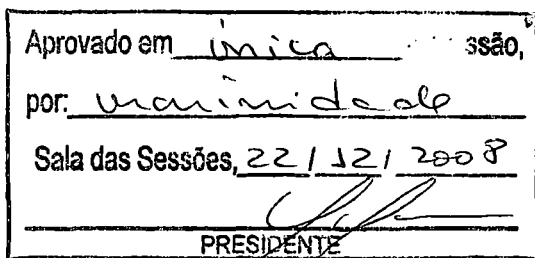 Aprovado em única ssão,
por: unanimidade
Sala das Sessões, 22 / 12 / 2008
PRESIDENTE